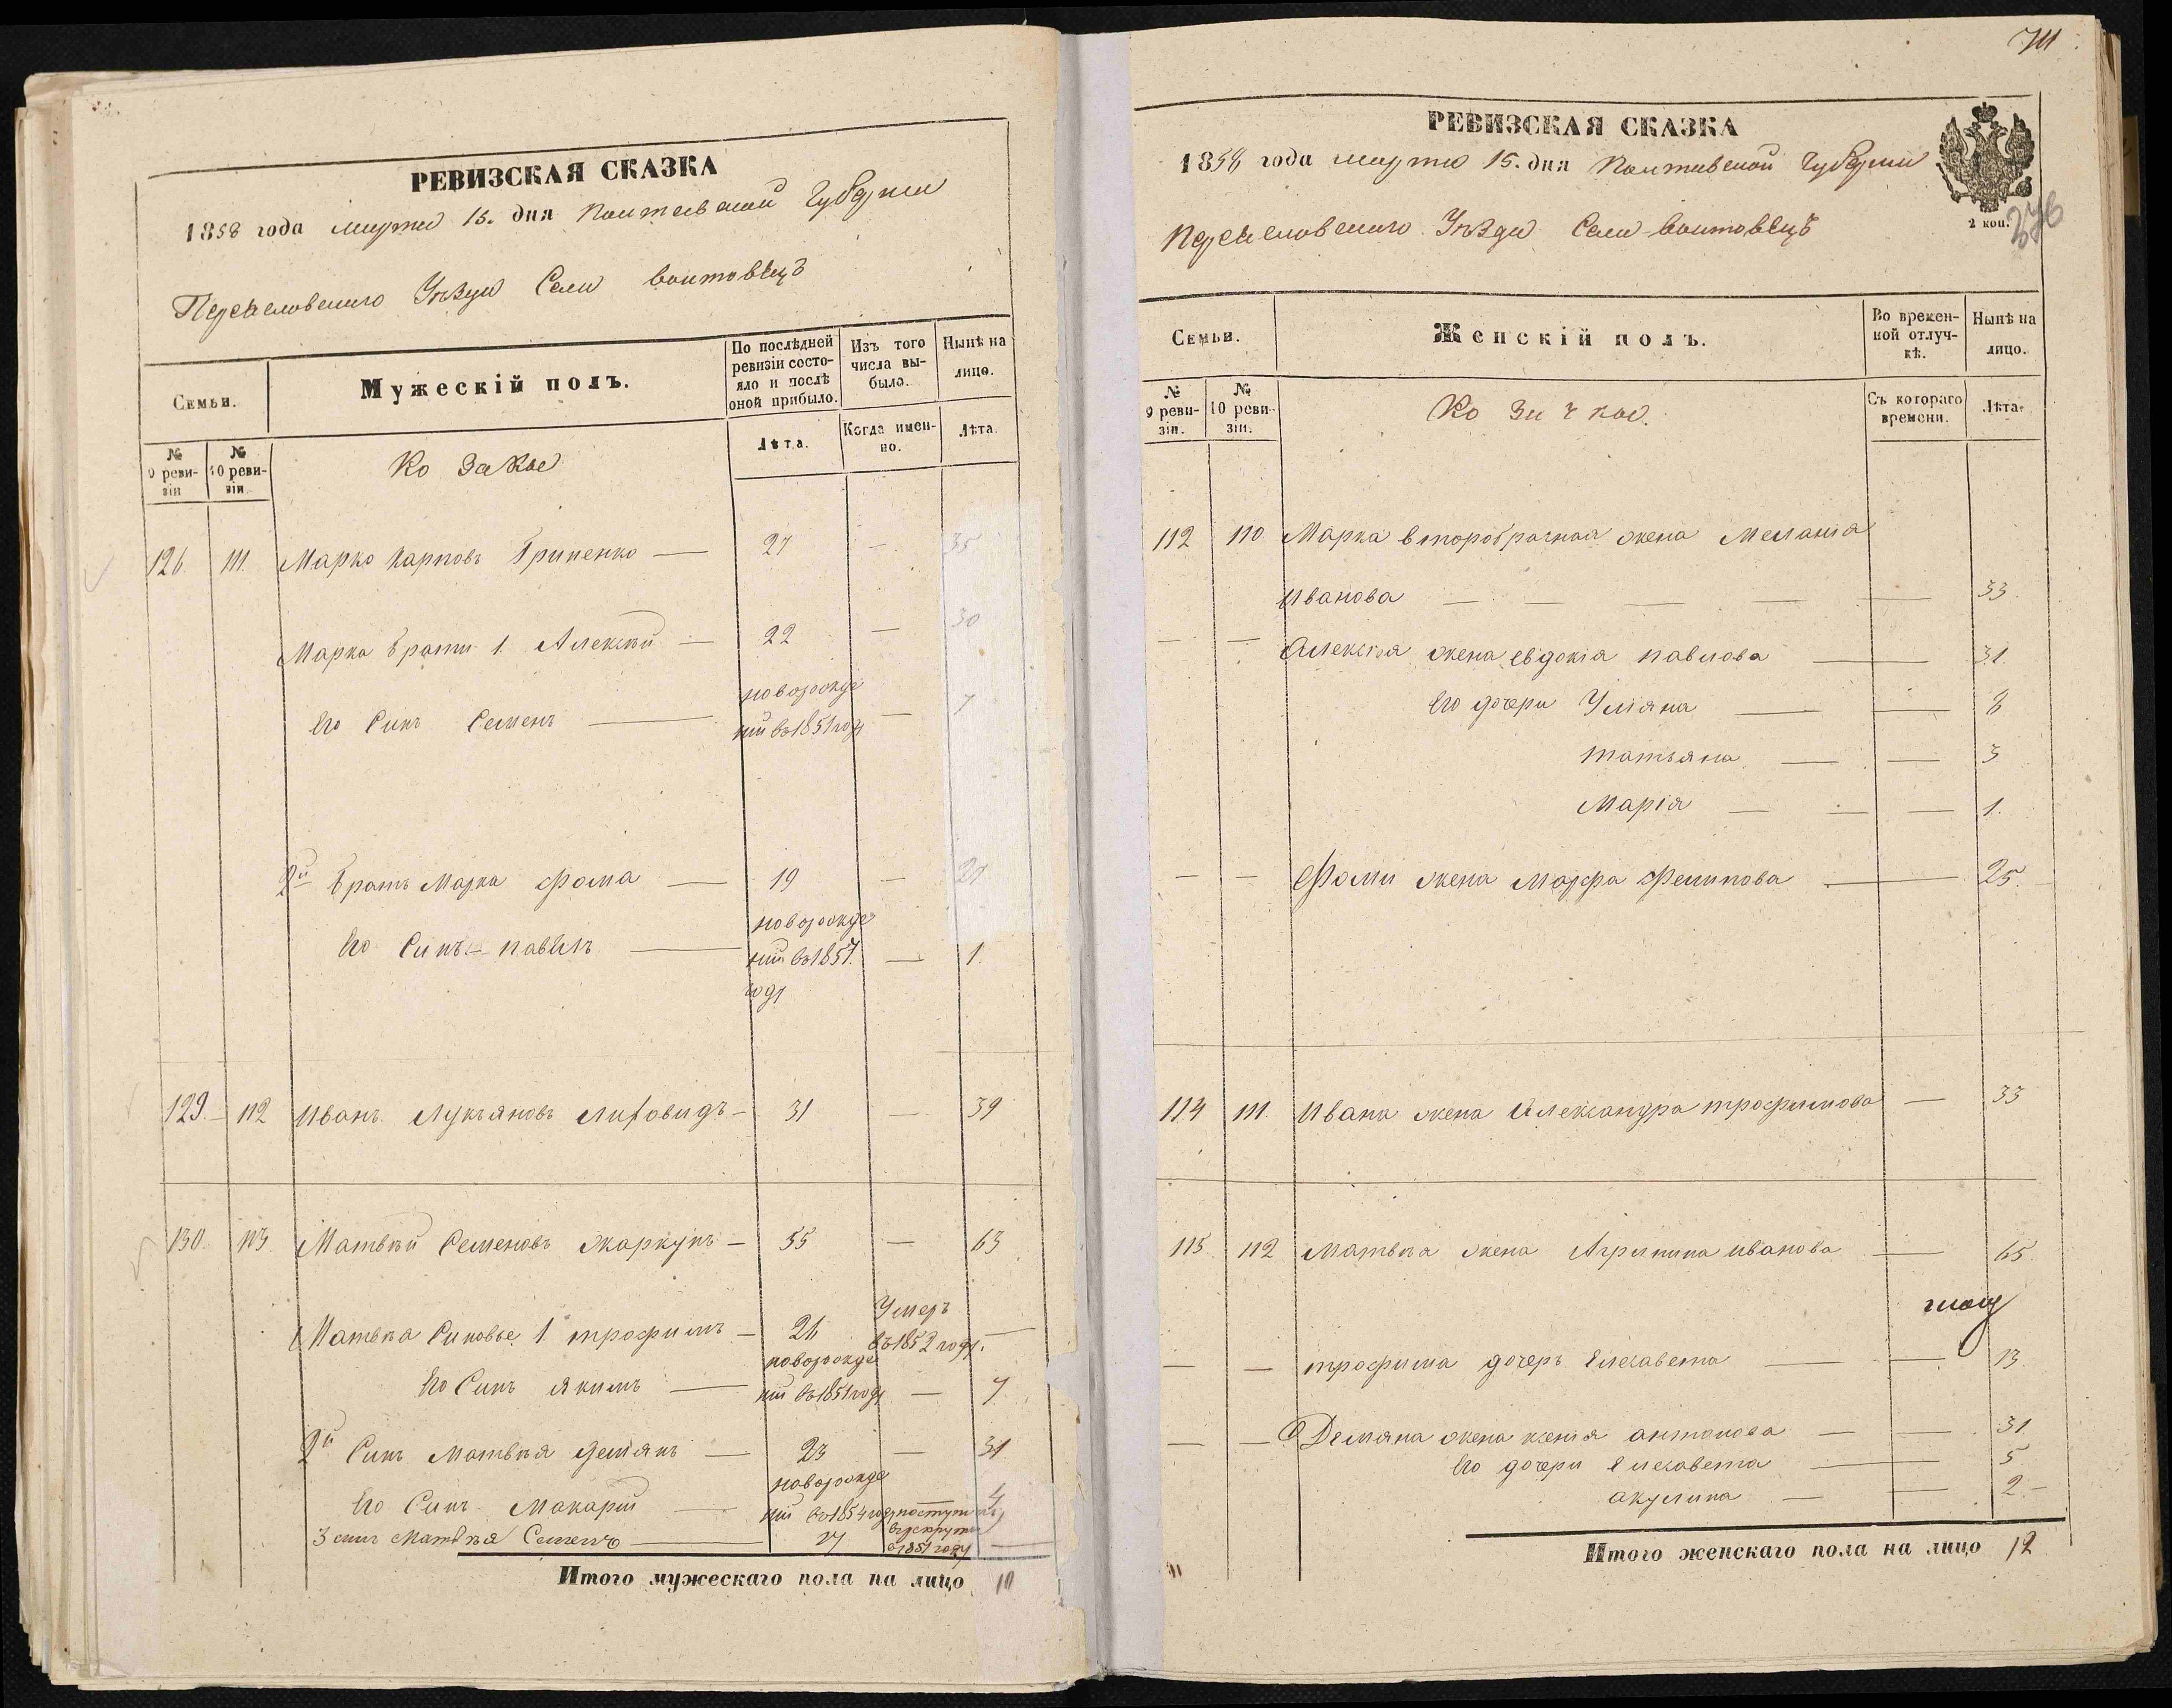 РЕВИЗСКАЯ СКАЗКА
1858 года марта 15. дня Полтавской Губернии
Переяславского Уѣзда Села Воитовѣцъ
Семьи.
Мужескій полъ.
По послѣдней ревизіи состояло и послѣ оной прибыло.
Изъ того числа выбыло.
Нынѣ на лицо.
№ 9 ревизіи
№ 10 ревизіи
Козаки
Лѣта.
Когда именно.
Лѣта.
126 111. Марко Карповъ Грипенко — 27 — 35
Марка братъ 1. Алексѣй — 22 — 30
Его Синъ Семенъ — новорожде
ний въ 1851 году — 7
2й братъ Марка Фома — 19 — 27
Его Синъ — Павелъ — новорожде
ний въ 1857. — 1.
году
129. 112 Иванъ Лукъяновъ — 31 — 39
130. 113 Матвѣй Семеновъ Жаркунъ — 55 — 63
Матвѣа Синовье 1й трофимъ — 26 Умеръ
въ 1852 году. —
Его Синъ якимъ — новорожде
ний въ 1851 году — 7
2й Синъ Матвѣя Демянъ — 23 — 31
Его Синъ Макарий — новорожде
ний въ 1854 году — 4
3 синъ Матвѣя Семенъ — 17 поступилъ
въ рекруты
в 1851 году —
Итого мужескаго пола на лицо 10
111
РЕВИЗСКАЯ СКАЗКА
1858 года марта 15. дня Полтавской Губернии
Переяславского Уѣзда Села Воитовѣцъ
2 коп.
276
Семьи.
Женскій полъ.
Во временной отлучкѣ.
Нынѣ на лицо.
№ 9 ревизіи.
№ 10 ревизіи.
Козачки.
Съ котораго времени.
Лѣта.
112 110 Марка второбрачная жена Меланіа
Иванова — — — — — 33
— — Алексѣя жена евдокіа павлова — 31.
Его дочери Уліяна — — 8
татьяна — — 3
Маріа — — — 1.
— — Фоми жена Марфа Филипова — 25.
114 111. Ивана жена Александра трофимова — 33
115. 112 Матвѣа жена Агрипина иванова — 65.
— — трофима дочеръ Елисавета — — 13
— — Демяна жена ксенія антонова — — 31
Его дочери Елисавета — 5
акулина — — 2. —
Итого женскаго пола на лицо 12